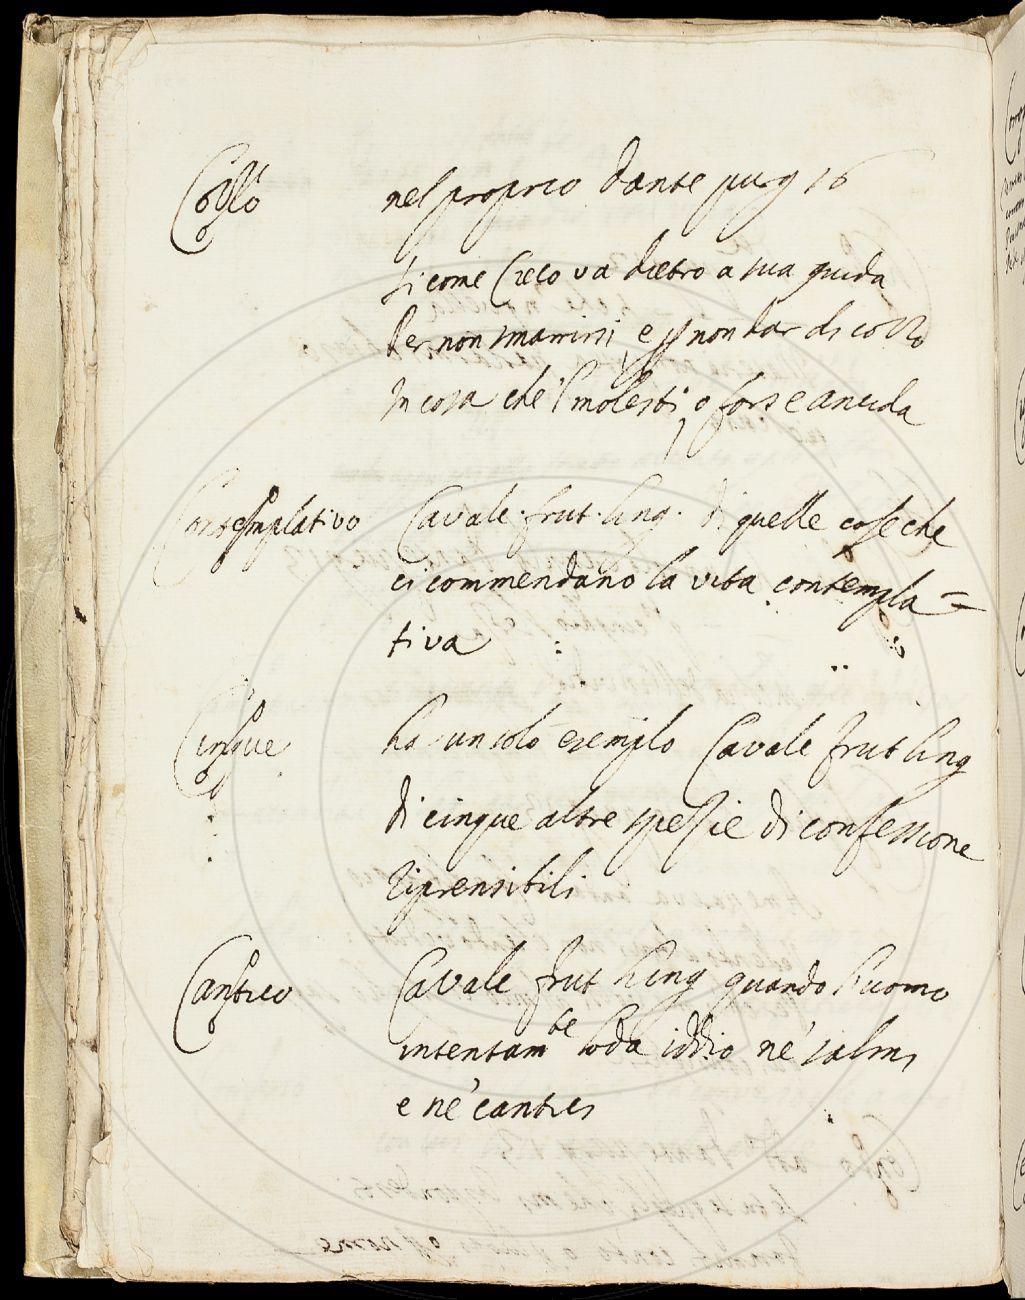 Cozzo nel proprio Dante purg 16
Si come Cieco va dietro a sua guida
Per non smarrirsi, e p non dar di cozzo
In cosa che 'l molesti, o forse ancida
Contemplativo Cavalc. frut. ling. di quelle cose che
ci commendano la vita contempla=
tiva
Cinque ha un solo esempio Cavalc frut ling
di cinque altre spezie di confessione
riprensibili
Cantico Cavalc frut ling quando l'uomo
intentamte loda iddio ne' salmi
e ne' cantici